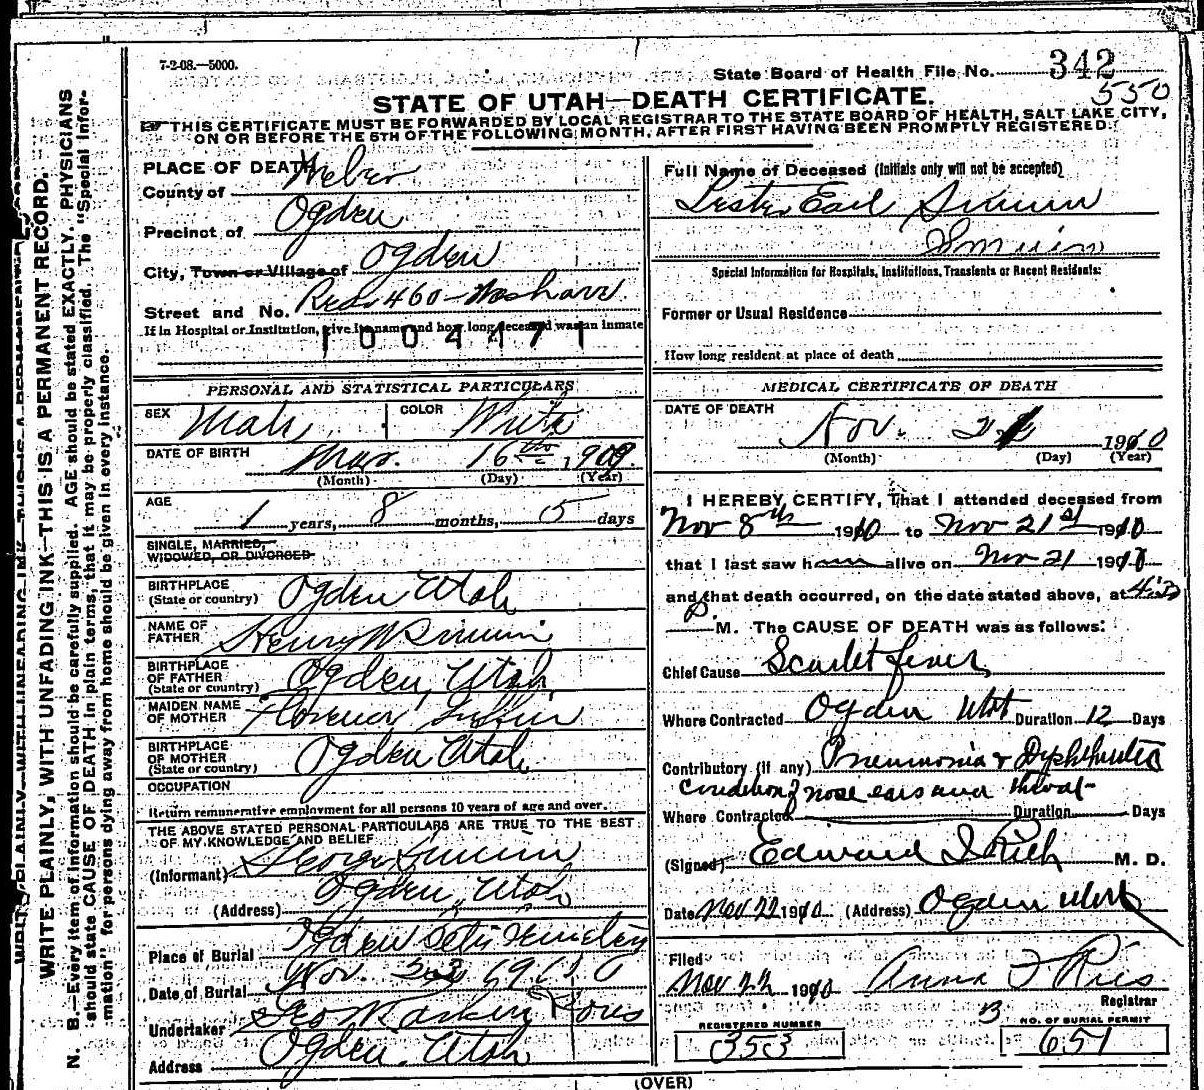 7-2-08.—5000.
State Board of Health File No. 342
550
STATE OF UTAH—DEATH CERTIFICATE.
THIS CERTIFICATE MUST BE FORWARDED BY LOCAL REGISTRAR TO THE STATE BOARD OF HEALTH, SALT LAKE CITY,
ON OR BEFORE THE 5TH OF THE FOLLOWING MONTH, AFTER FIRST HAVING BEEN PROMPTLY REGISTERED.
WRITE PLAINLY, WITH UNFADING INK—THIS IS A PERMANENT RECORD.
N. B.—Every item of information should be carefully supplied. AGE should be stated EXACTLY. PHYSICIANS
should state CAUSE OF DEATH in plain terms, that it may be properly classified. The "Special Infor-
mation" for persons dying away from home should be given in every instance.
PLACE OF DEATH
County of Weber
Precinct of Ogden
City, Town or Village of Ogden
Street and No. Res. 460
If in Hospital or Institution, give its name and how long deceased was an inmate
1004471
PERSONAL AND STATISTICAL PARTICULARS
SEX Male COLOR White
DATE OF BIRTH Mar. 16th 1909
(Month) (Day) (Year)
AGE 1 years, 8 months, 5 days
SINGLE, MARRIED,
WIDOWED, OR DIVORCED
BIRTHPLACE
(State or country) Ogden Utah
NAME OF
FATHER Henry W
BIRTHPLACE
OF FATHER
(State or country) Ogden, Utah
MAIDEN NAME
OF MOTHER Florence
BIRTHPLACE
OF MOTHER
(State or country) Ogden Utah
OCCUPATION
Return remunerative employment for all persons 10 years of age and over.
THE ABOVE STATED PERSONAL PARTICULARS ARE TRUE TO THE BEST
OF MY KNOWLEDGE AND BELIEF
(Informant) George
(Address) Ogden, Utah
Place of Burial Ogden City Cemetery
Date of Burial Nov. 1910
Undertaker Geo W Larkin Sons
Address Ogden, Utah
Full Name of Deceased (Initials only will not be accepted)
Lester Earl Simuin
Smuin
Special Information for Hospitals, Institutions, Transients or Recent Residents:
Former or Usual Residence
How long resident at place of death
MEDICAL CERTIFICATE OF DEATH
DATE OF DEATH
Nov. 21 1910
(Month) (Day) (Year)
I HEREBY CERTIFY, That I attended deceased from
Nov 8th 1910 to Nov 21st 1910
that I last saw him alive on Nov 21 1910
and that death occurred, on the date stated above, at 4:30
P. M. The CAUSE OF DEATH was as follows:
Chief Cause Scarlet fever
Where Contracted Ogden Utah Duration 12 Days
Contributory (if any) Pneumonia &
condition of nose ears and throat
Where Contracted Duration Days
(Signed) Edward I Rich M. D.
Date Nov 22 1910 (Address) Ogden Utah
Filed
Nov 22 1910 Anna F Ries
Registrar
REGISTERED NUMBER
353
NO. OF BURIAL PERMIT
B 651
(OVER)